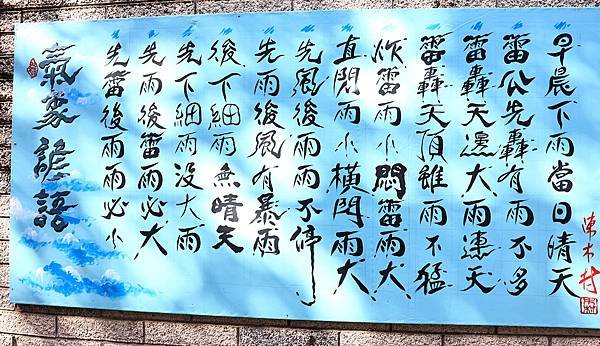 陳木村
早晨下雨當日晴天
雷公先轟有雨不多
雷轟天邊大雨連天
雷轟天頂雖雨不猛
炸雷雨小悶雷雨大
直閃雨小橫閃雨大
先風後雨雨不停
先雨後風有暴雨
後下細雨無晴天
先下細雨沒大雨
先雨後雷雨必大
先雷後雨雨必小
氣象諺語